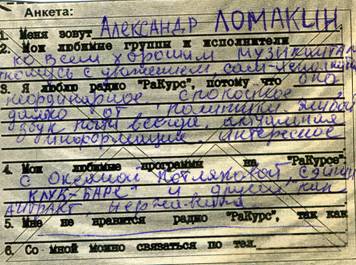 Анкета:
1. Меня зовут АЛЕКСАНДР ЛОМАКИН.
2. Мои любимые группы и исполнители
ко всем хорошим музыкантам
отношусь с уважением сам-
3. Я люблю радио "РаКурс", потому что оно
неординарное, спокойное,
далёко от политики,
звук почти всегда,
информация, интересное
4. Мои любимые программы на "РаКурсе":
с Оксаной Котляковой,
КЛУБ-БАРЕ" и другие, как
АНТРАКТ
5. Мне не нравится радио "РаКурс", так как
6. Со мной можно связаться по тел.